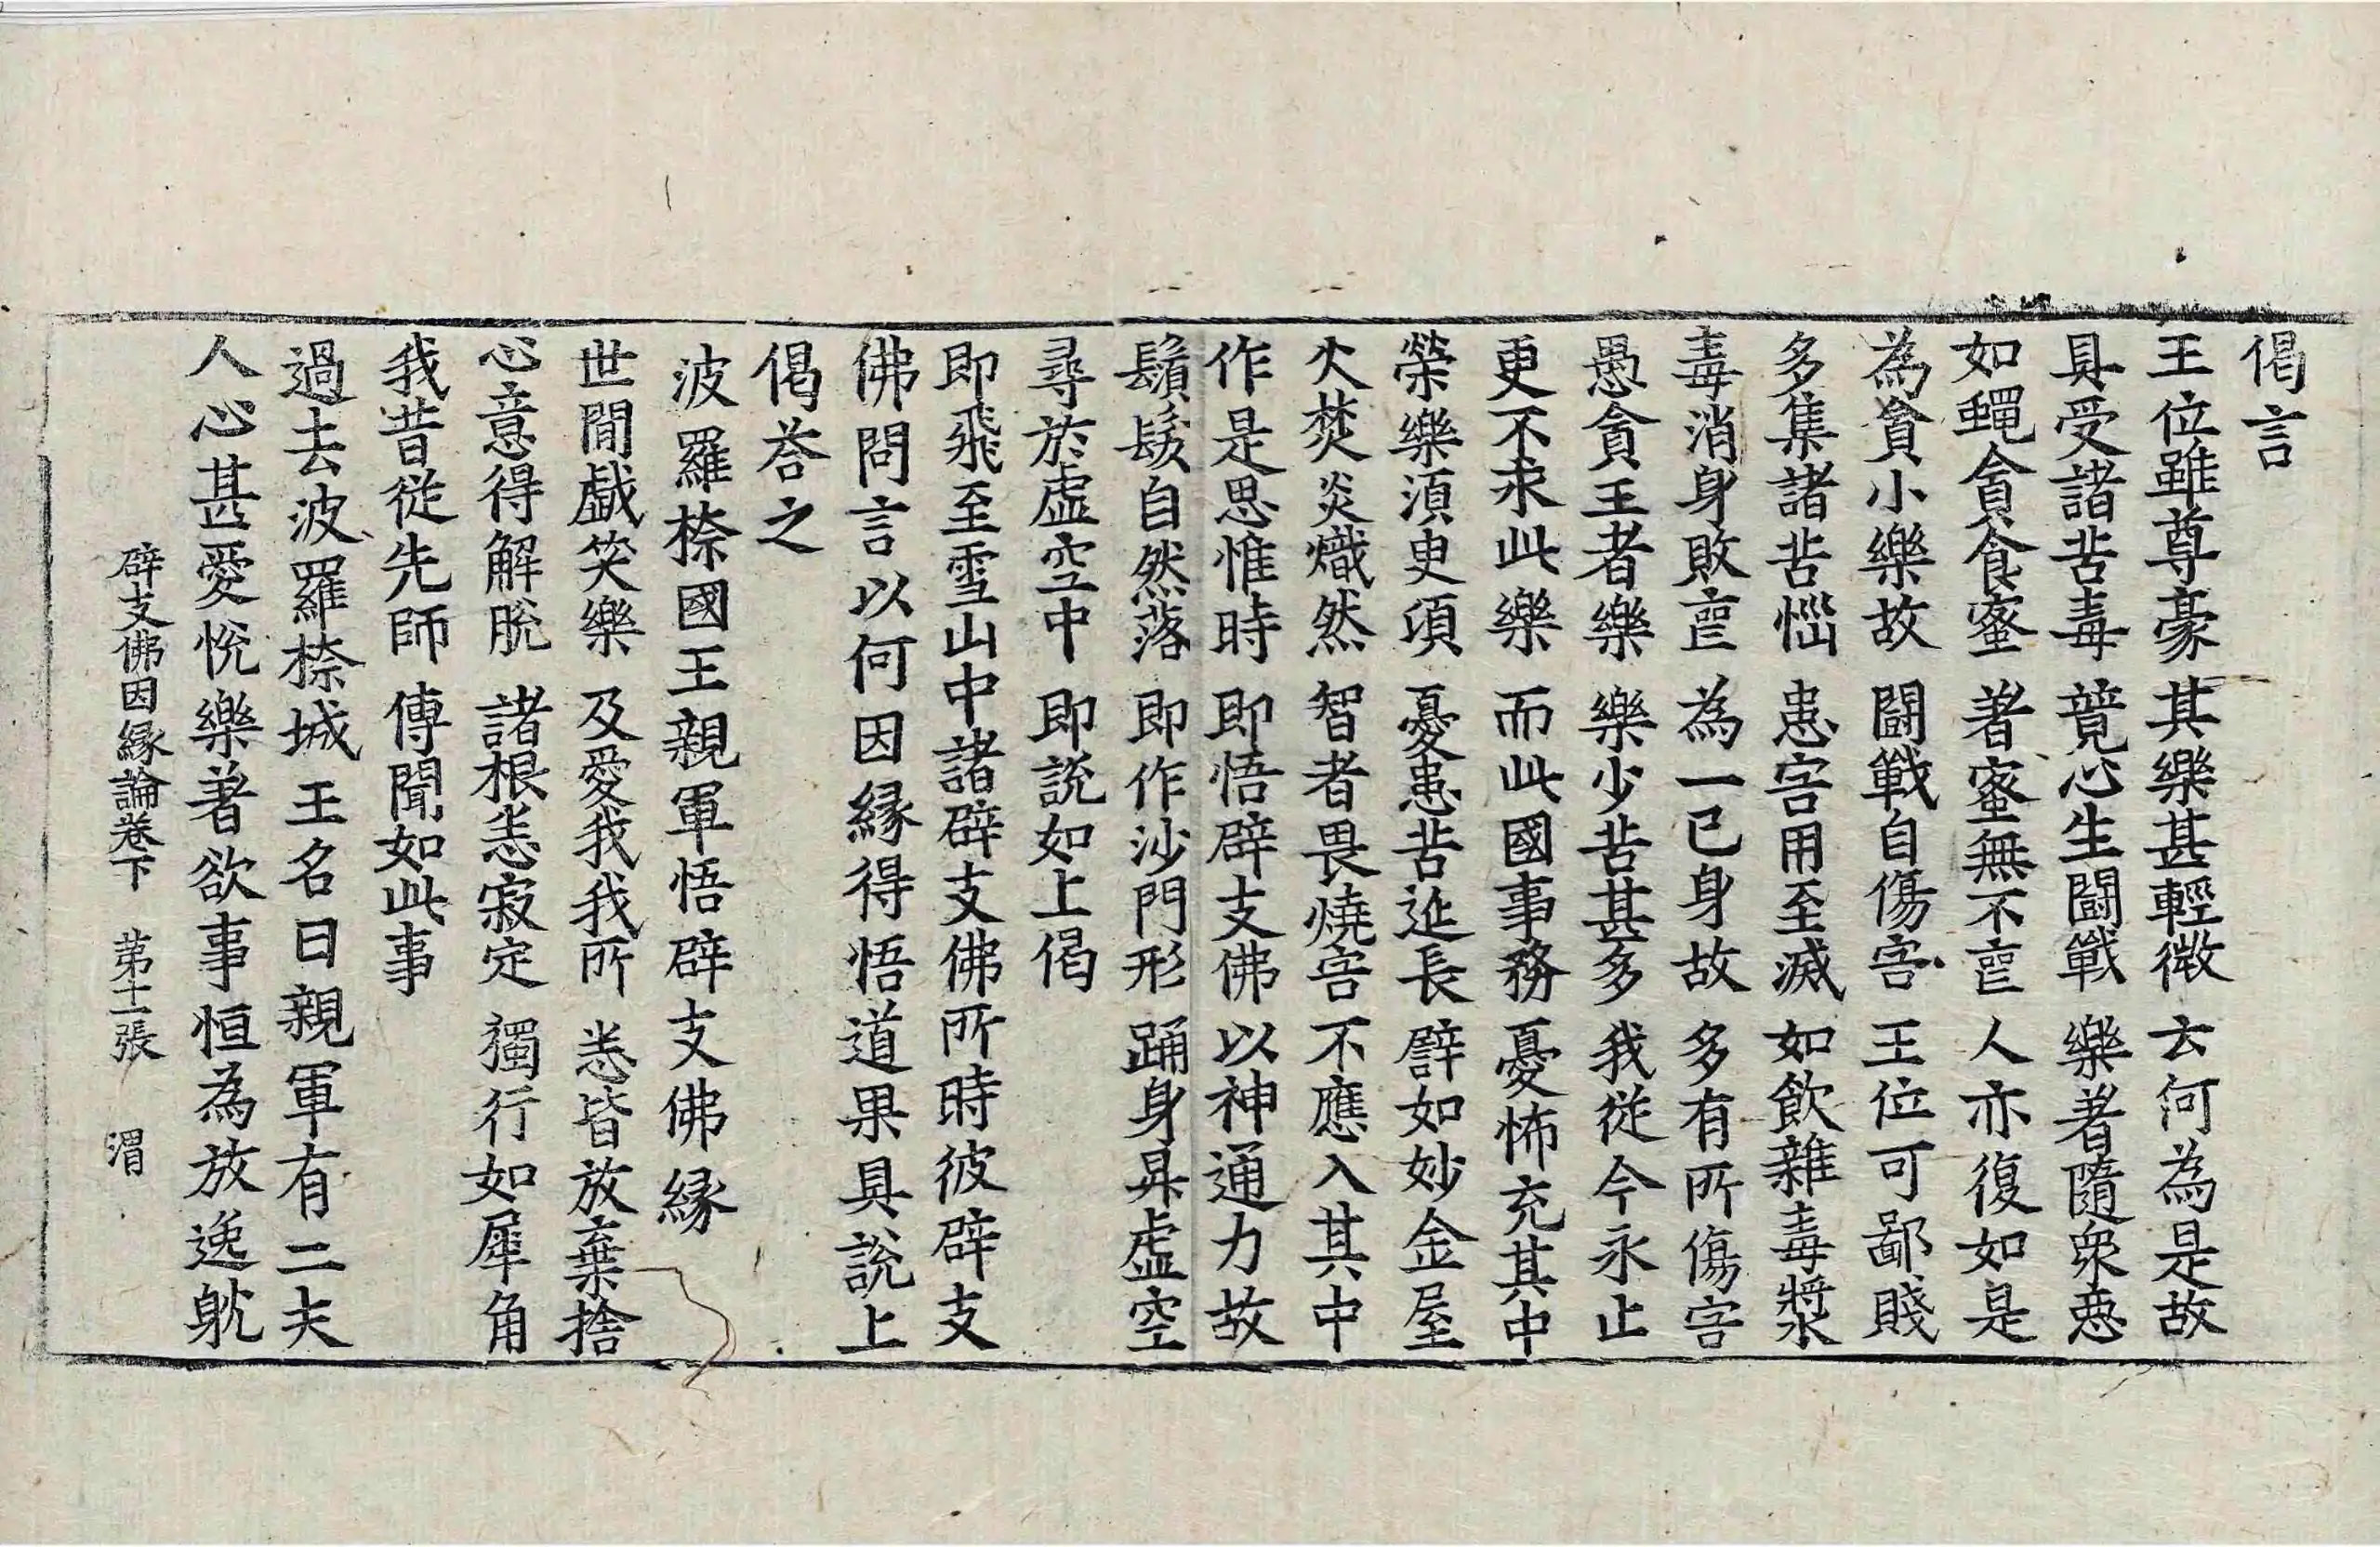 偈言
王位雖尊豪 其樂甚輕微 云何為是故
具受諸苦毒 竟心生鬪戰 樂著隨衆惡
如蠅貪食蜜 著蜜無不亡 人亦復如是
為貪小樂故 鬪戰自傷害 王位可鄙賤
多集諸苦惱 患害用至滅 如飲雜毒漿
毒消身敗亡 為一已身故 多有所傷害
愚貪王者樂 樂少苦甚多 我從今永止
更不求此樂 而此國事務 憂怖充其中
榮樂須臾頃 憂患苦延長 譬如妙金屋
火焚炎熾然 智者畏燒害 不應入其中
作是思惟時 即悟辟支佛 以神通力故
鬚髮自然落 即作沙門形 踊身昇虛空
尋於虛空中 即說如上偈
即飛至雪山中諸辟支佛所時彼辟支
佛問言以何因緣得悟道果具說上
偈荅之
波羅㮈國王親軍悟辟支佛緣
世閒戲笑樂 及愛我我所 悉皆放棄捨
心意得解脫 諸根悉寂定 獨行如犀角
我昔從先師 傳聞如此事
過去波羅㮈城王名曰親軍有二夫
人心甚愛悅樂著欲事恒為放逸躭
辟支佛因緣論卷下 第十二張 渭